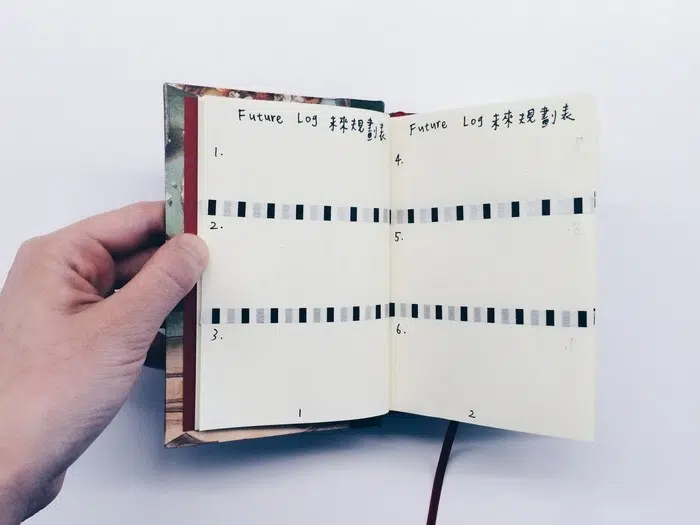 Future Log 未來規劃表
1.
2.
3.
1
Future Log 未來規劃表
4.
5.
6.
2